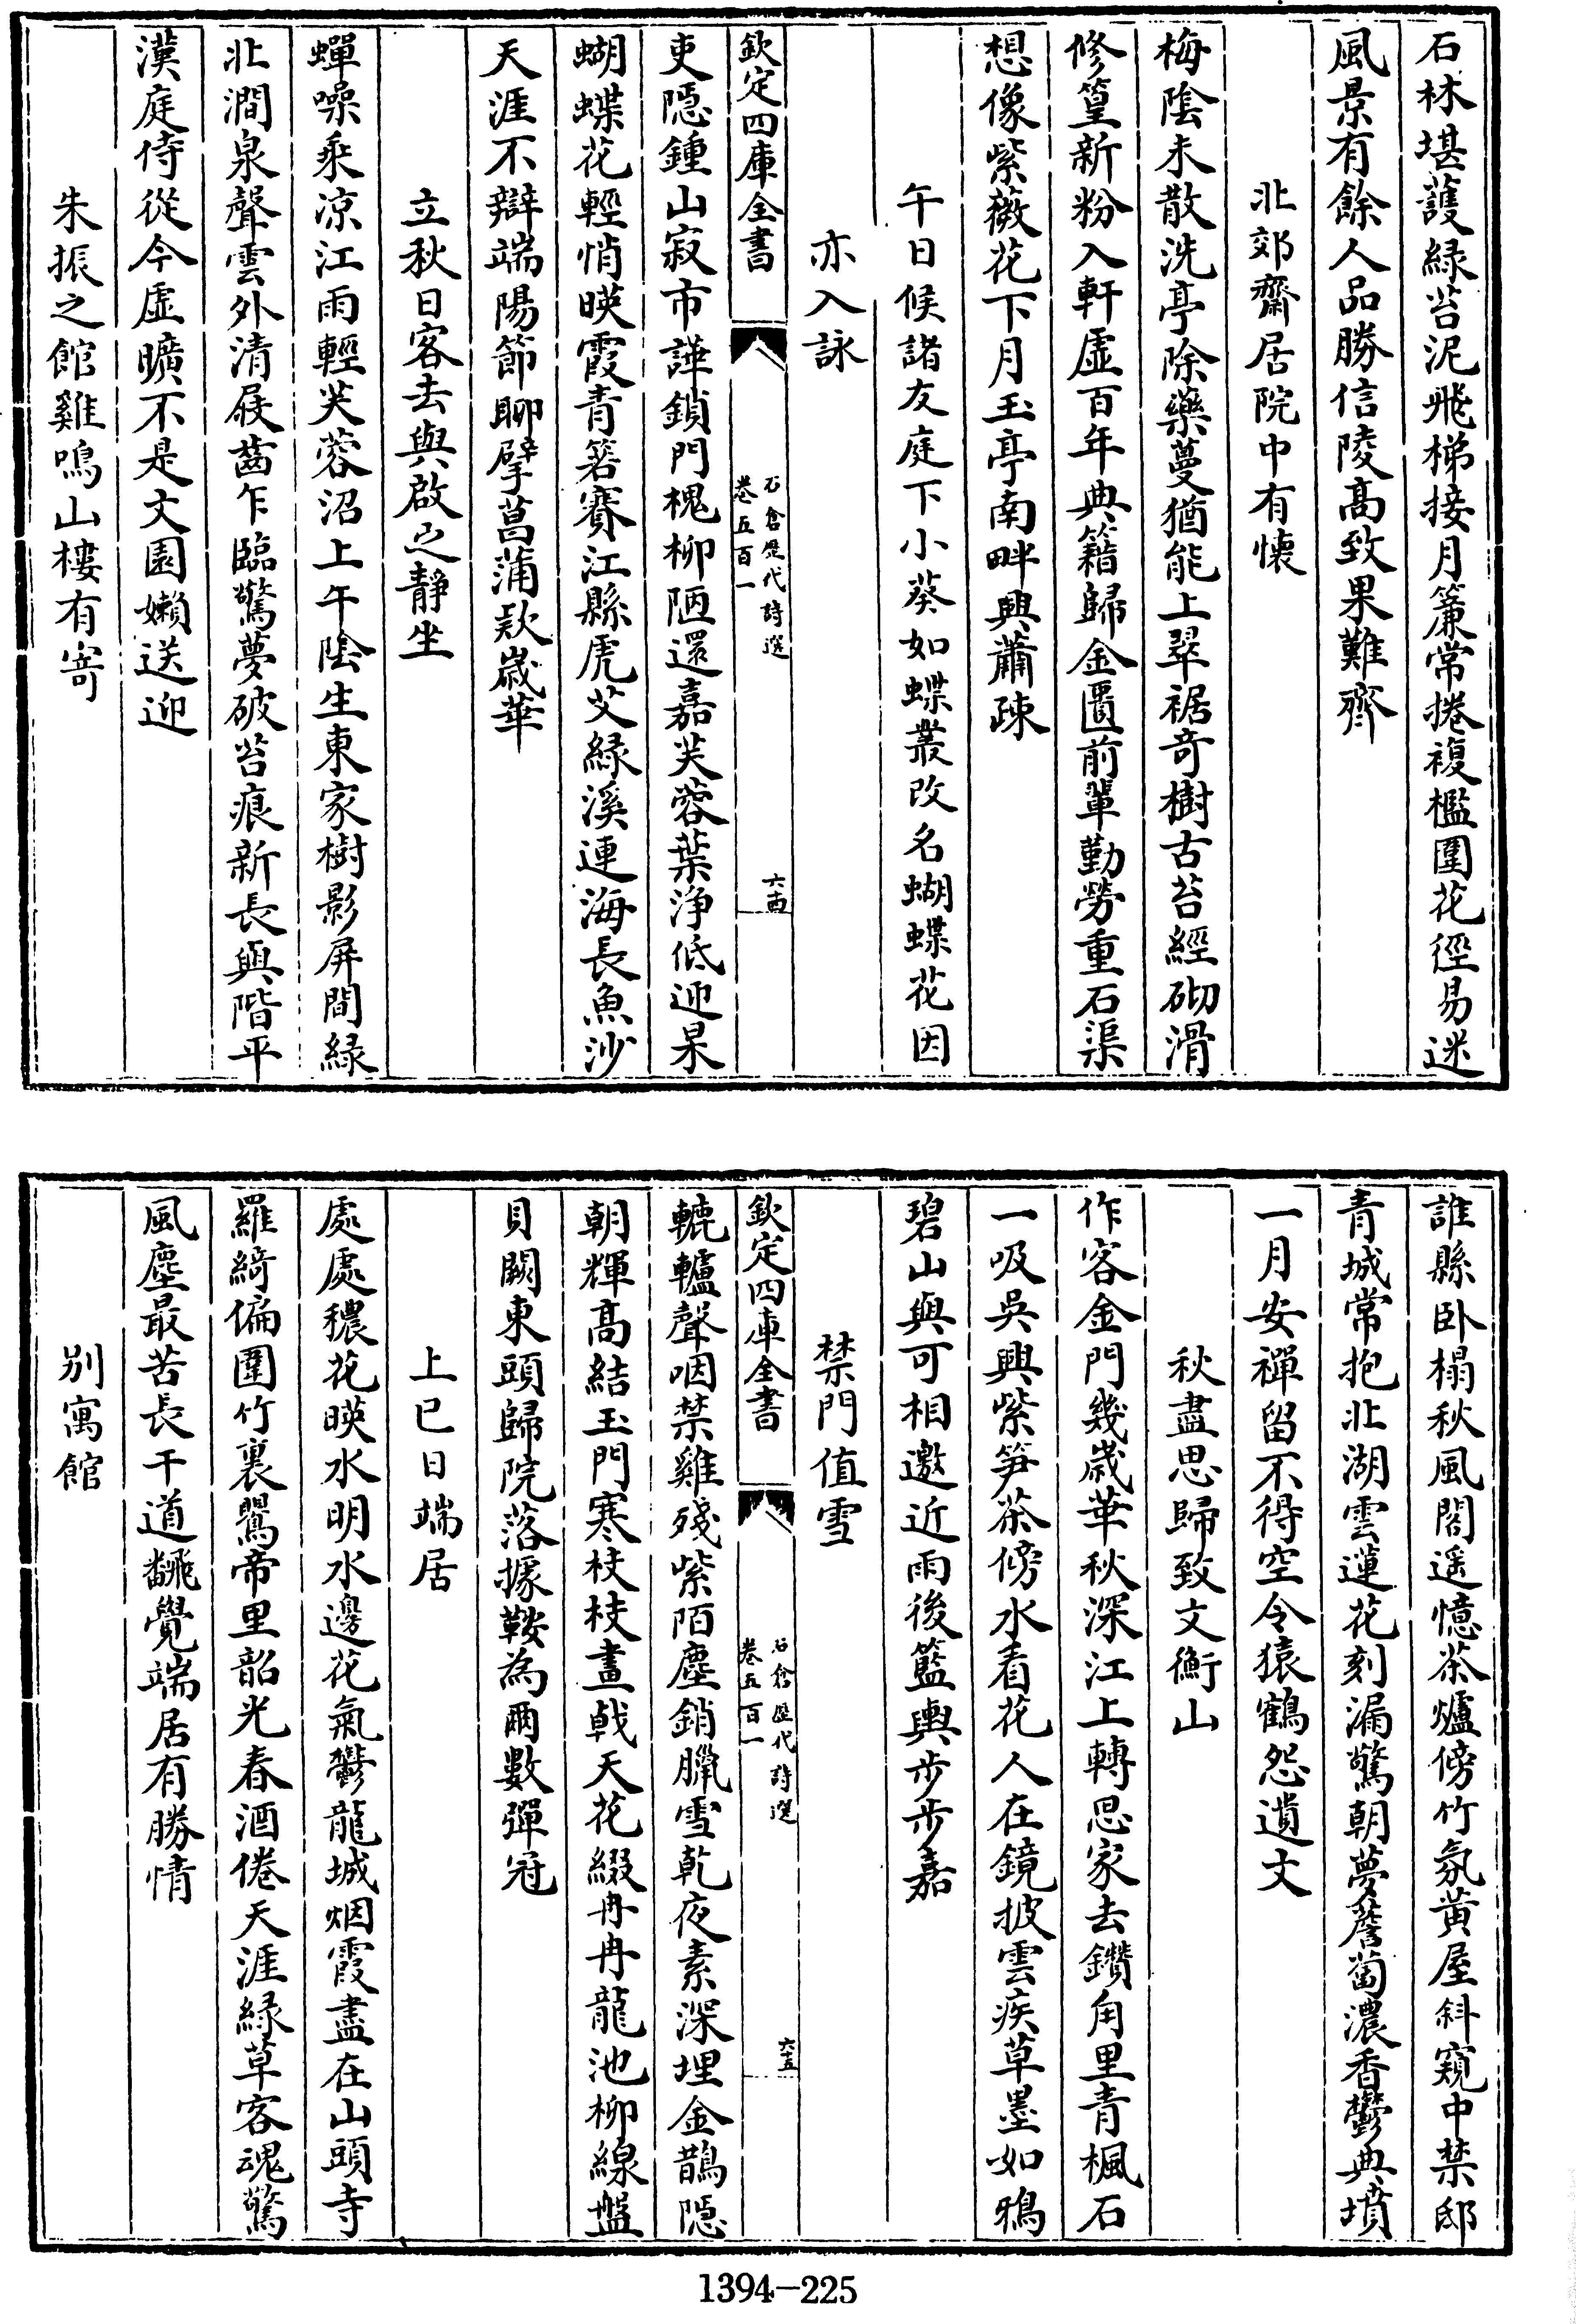 石林堪護緑苔泥飛梯接月簾常捲複檻圍花徑易迷
風景有餘人品勝信陵髙致果難齊
北郊齋居院中有懐
梅陰未散洗亭除藥蔓猶能上翠裾竒樹古苔經砌滑
修篁新粉入軒虚百年典籍歸金匱前輩勤勞重石渠
想像紫薇花下月玉亭南畔興蕭疎
午日候諸友庭下小葵如蝶叢改名蝴蝶花因
亦入詠
欽定四庫全書
石倉歴代詩選
卷五百一
六十四
吏隠鍾山寂市譁鎖門槐柳陋還嘉芙蓉葉淨低迎杲
蝴蝶花輕悄暎霞青箬賽江縣虎艾緑溪連海長魚沙
天涯不辯端陽節聊擘菖蒲欵嵗華
立秋日客去與啟之靜坐
蟬噪乘凉江雨輕芙蓉沼上午陰生東家樹影屏間緑
北澗泉聲雲外清屐齒乍臨驚夢破苔痕新長與階平
漢庭侍從今虚曠不是文園嬾送迎
朱振之館雞鳴山樓有寄
誰縣卧榻秋風閣遥憶茶爐傍竹氛黄屋斜窺中禁邸
青城常抱北湖雲蓮花刻漏驚朝夢薝蔔濃香鬱典墳
一月安禪留不得空令猿鶴怨遺文
秋盡思歸致文衡山
作客金門幾嵗華秋深江上轉思家去鑽角里青楓石
一吸吳興紫笋茶傍水看花人在鏡披雲疾草墨如鴉
碧山與可相邀近雨後籃輿步步嘉
禁門值雪
欽定四庫全書
石倉歴代詩選
卷五百一
六十五
轆轤聲咽禁雞殘紫陌塵銷臘雪乾夜素深埋金鵲隠
朝輝髙結玉門寒枝枝畫㦸天花綴冉冉龍池柳線盤
貝闕東頭歸院落據鞍為爾數彈冠
上巳日端居
處處穠花暎水明水邊花氣鬱龍城烟霞盡在山頭寺
羅綺偏圍竹裏鶯帝里韶光春酒倦天涯緑草客魂驚
風塵最苦長干道飜覺端居有勝情
别寓館
1394—225